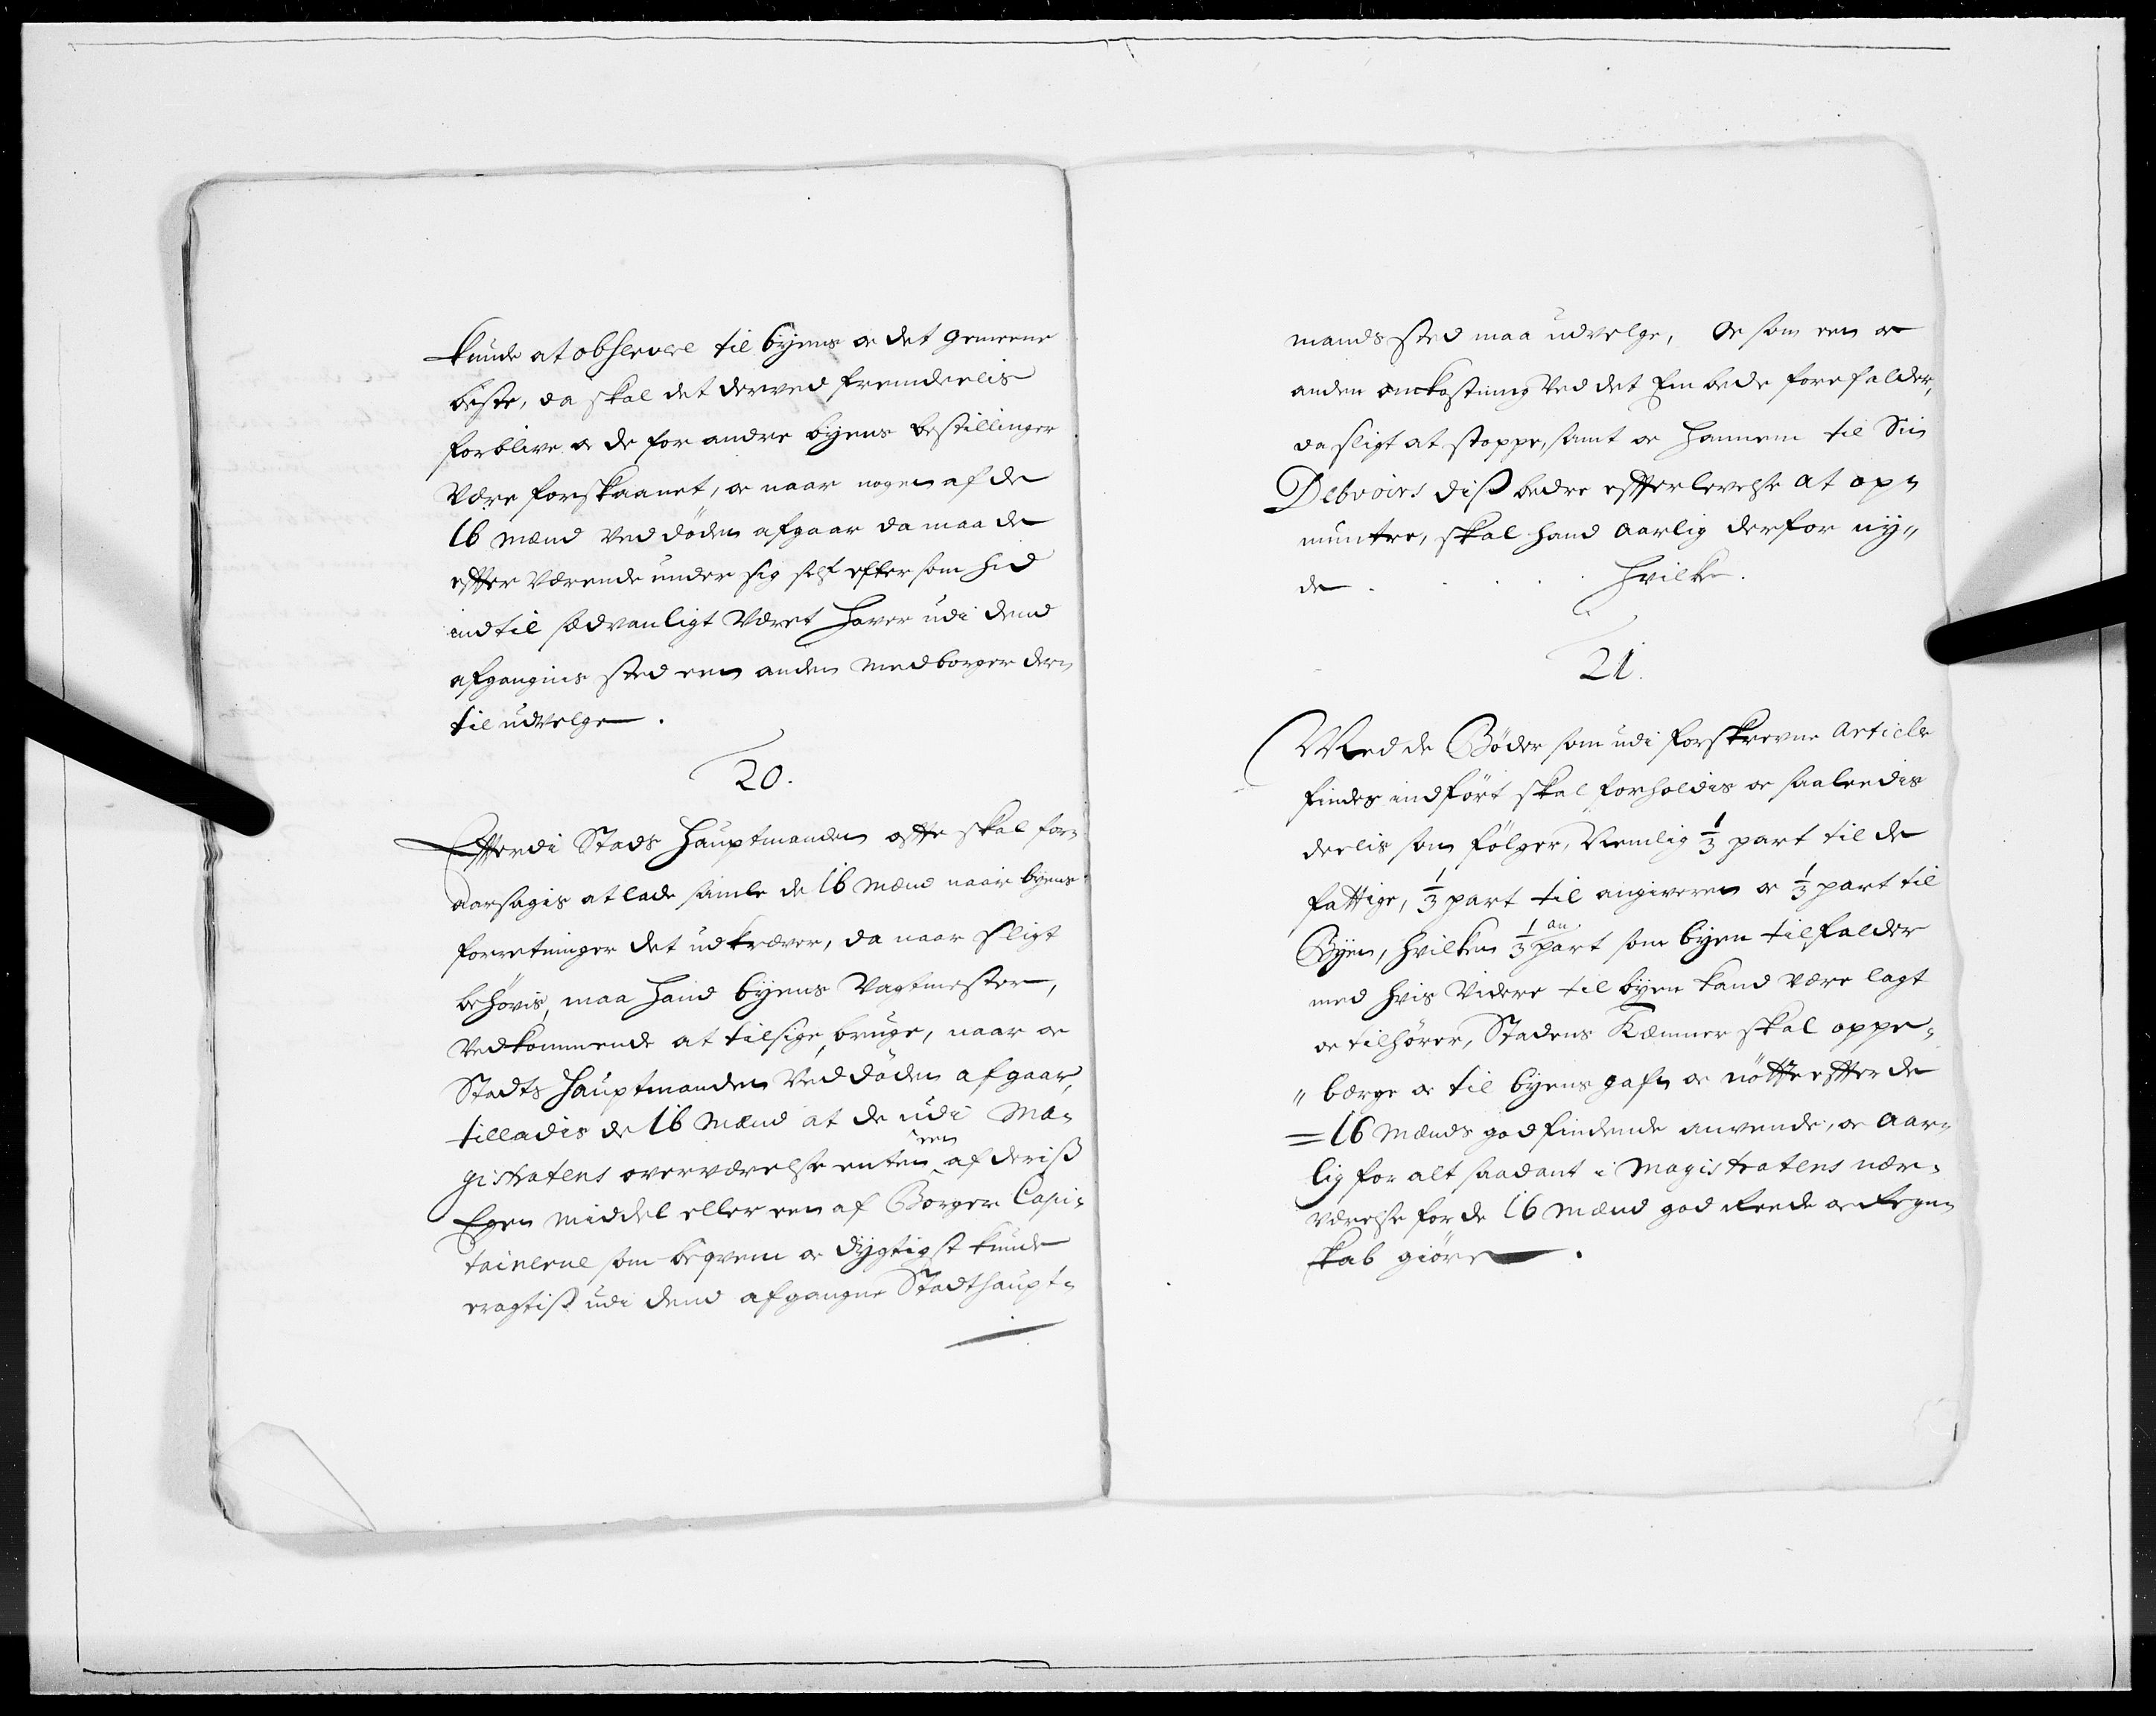 kunde at observere til byens oc det gemeene
beste, da skal det derved fremdeelis
forblive oc de for andre byens bestillinger
være forskaanet, oc naar nogen af de
16 mænd ved døden afgaar da maa de
effter værende under sig self efter som hid
indtil sædvanligt været hafver udi dend
afgangnis sted een anden medborger der-
til udvelge.
20.
Efterdi Stads Hauptmanden offte skal for-
aarsagis at lade samle de 16 mænd naar byens
forretninger det udkræver, da naar sligt
behøvis, maa hand byens Vagtmester,
vedkommende at tilsige, bruge, naar oc
Stadts Hauptmanden ved døden afgaar,
tilladis de 16 Mænd at de udi Ma-
gistratens overværelse enten een af deris
Egen middel eller een af Borger Capi-
tainerne som beqvem oc dygtigst kunde
eragtiss udi dend afgangne Stadthaupt-
mands sted maa udvelge, oc som een oc
anden omkostning ved det Embede forefalder,
da sligt at stoppe, samt oc hannem til Sin
Debvoirs diss bedre effterlevelse at op-
muntre, skal hand aarlig derfor ny-
de . . . . hvilke.
21.
Med de Bøder som udi forskrevne Article
findes indført skal forholdis oc saaledis
deelis som følger, Nemlig 1/3 part til de
fattige, 1/3 part til angiveren oc 1/3 part til
Byen, hvilken 1/3 an part som byen tilfalder
med hvis videre til byen kand være lagt
oc tilhører, Stadens Kæmner skal oppe-
" bærge oc til byens gafn oc nøtte effter de
= 16 Mænds godfindende anvende, oc aar-
lig for alt saadant i Magistratens nær-
værelse for de 16 mænd god Reede oc Regn-
skab giøre.